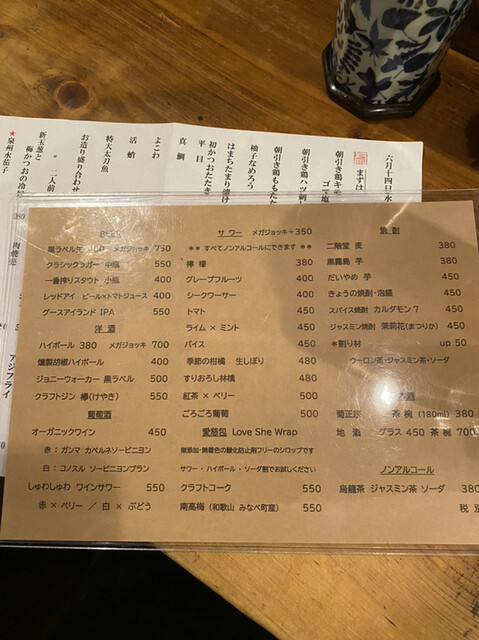 六月十四日(水
まずは
朝引き鶏キモ
ゴマ塩
朝引き鶏ハツ刺
朝引き鶏ももたた
柚子なめろう
はまちたまり漬け
初かつおたたき
平目
真鯛
よこわ
活蛸
特大太刀魚
お造り盛り合わせ
〃 二人前
新玉葱と
梅かつおの冷
★泉州水茄子
380
肉焼売
アジフライ
サワー メガジョッキ+350
** すべてノンアルコールにできます **
檸檬 380
グレープフルーツ 400
シークワーサー 400
トマト 450
ライム × ミント 450
バイス 450
季節の柑橘 生しぼり 480
すりおろし林檎 480
紅茶 × ベリー 500
ごろごろ葡萄 500
愛慈包 Love She Wrap
無添加・無着色の酸化防止剤フリーのシロップです
サワー・ハイボール・ソーダ割でお試しください
クラフトコーク 550
南高梅 (和歌山 みなべ町産) 550
メガジョッキ 750
クラシックラガー 中瓶 550
一番搾りスタウト 小瓶 400
レッドアイ ビール×トマトジュース 400
グースアイランド IPA 550
洋酒
ハイボール 380 メガジョッキ 700
燻製胡椒ハイボール 400
ジョニーウォーカー 黒ラベル 500
クラフトジン 欅(けやき) 550
葡萄酒
オーガニックワイン 450
赤:ガンマ カベルネソービニヨン
白:コノスル ソービニヨンブラン
しゅわしゅわ ワインサワー 550
赤 × ベリー / 白 × ぶどう
焼酎
二階堂 麦 380
黒霧島 芋 380
だいやめ 芋 450
きょうの焼酎・泡盛 450
スパイス焼酎 カルダモン 7 450
ジャスミン焼酎 茉莉花(まつりか) 450
*割り材 up 50
ウーロン茶・ジャスミン茶・ソーダ
菊正宗 茶碗 (180ml) 380
地酒 グラス 450 茶碗 700
ノンアルコール
烏龍茶 ジャスミン茶 ソーダ 380
税別